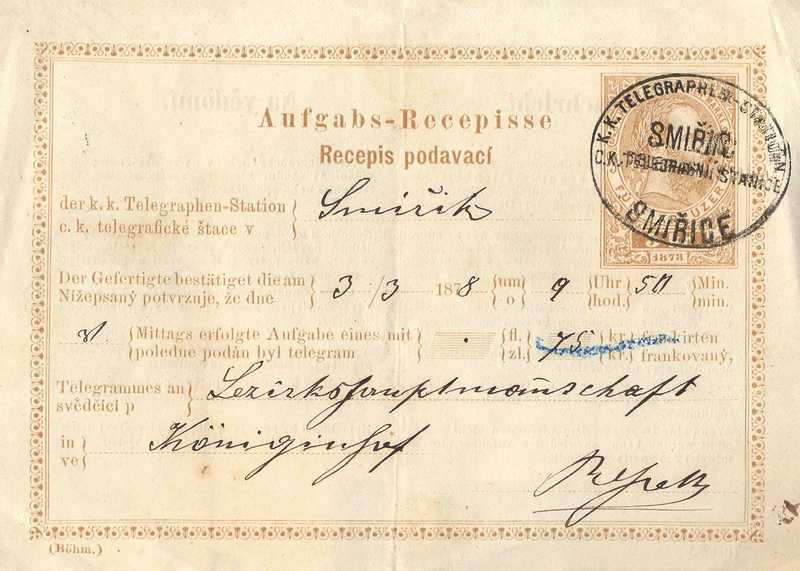 Aufgabs-Recepisse
Recepis podavací
K. K. TELEGRAPHEN-STATION
SMIŘIC
C.K. TELEGRAFNÍ STANICE
SMIŘICE
1873
der k. k. Telegraphen-Station
c. k. telegrafické štace v
Smiřitz
Der Gefertigte bestätiget die am
Nížepsaný potvrzuje, že dne
3/3 1878 um
o
9 Uhr
hod.
50 Min.
min.
V. Mittags erfolgte Aufgabe eines mit
poledne podán byl telegram
fl.
zl.
75 kr. frankirten
kr. frankovaný,
Telegrammes an
svědčící p
Bezirkshauptmannschaft
in
ve
Königinhof
(Böhm.)